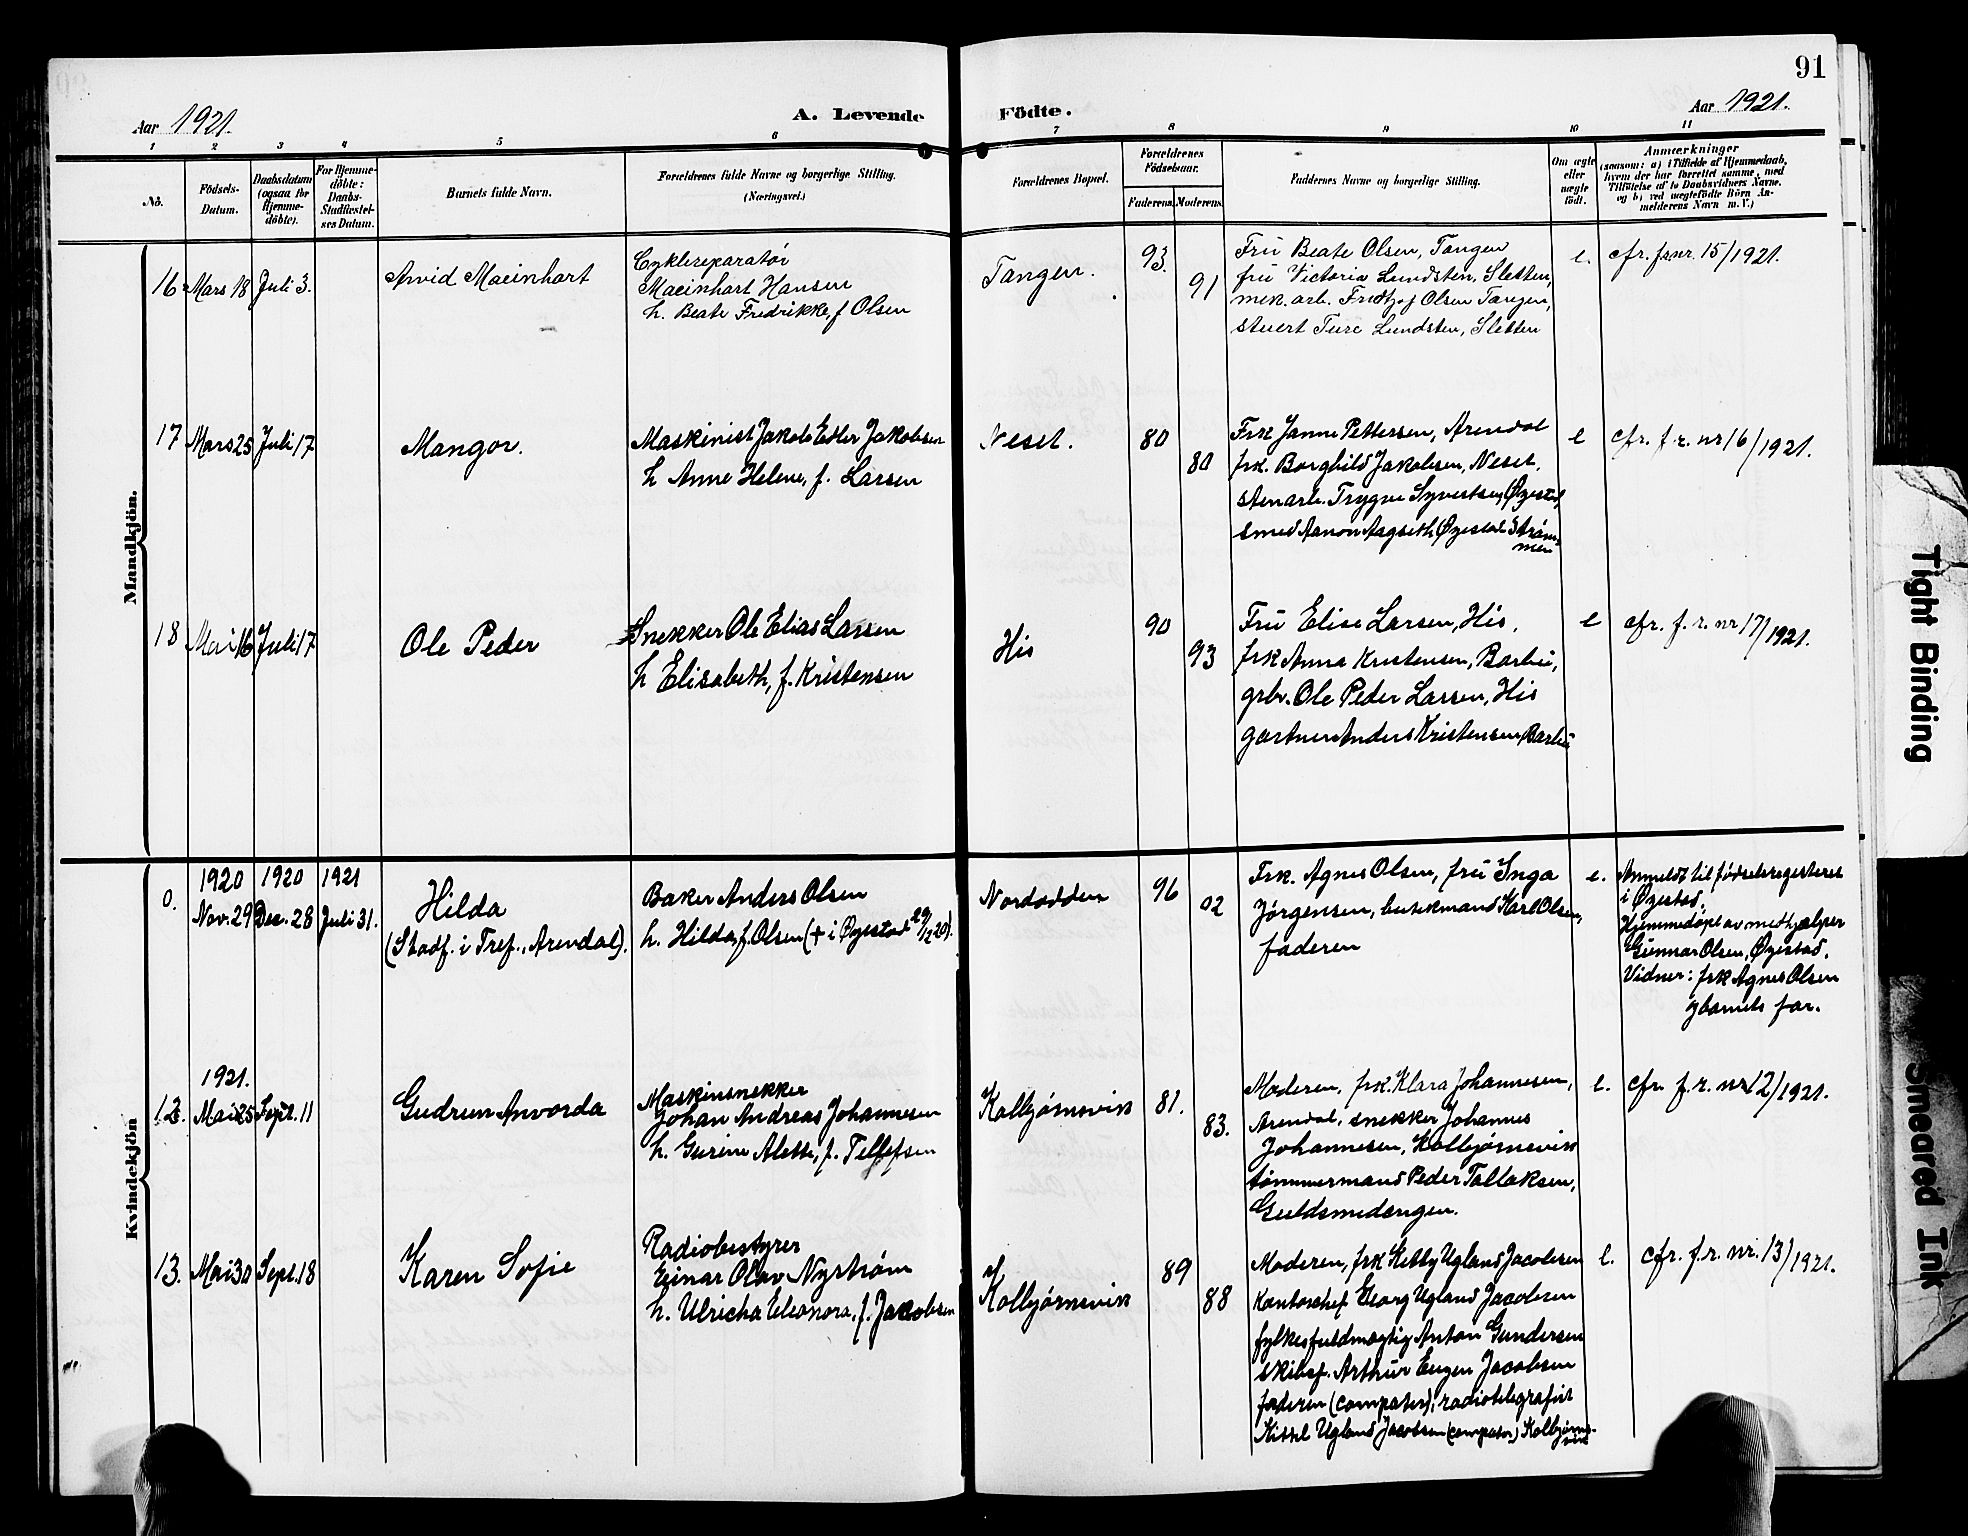 91
Aar 1921.
A. Levende Födte.
Aar 1921.
1 2 3 4 5 6 7 8 9 10 11
No.
Födsels-Datum.
Daabsdatum (ogsaa for Hjemme-döbte).
For Hjemme-döbte: Daabs-Stadfæstel-ses Datum.
Barnets fulde Navn.
Forældrenes fulde Navne og borgerlige Stilling.
(Næringsvei.)
Forældrenes Bopæl.
Forældrenes Födselsaar.
Faderens. Moderens.
Faddernes Navne og borgerlige Stilling.
Om ægte eller uægte födt.
Anmærkninger
(saasom: a) i Tilfælde af Hjemmedaab,
hvem der har forrettet samme, med
Tilföielse af to Daabsvidners Navne,
og b) ved uægtefödte Börn An-
melderens Navn m. V.)
Mandkjön.
16 Mars 18 Juli 3. Arvid Maeinhart
Cyklereparatør
Maeinhart Hansen
h. Beate Fredrikke, f Olsen
Tangen. 93. 91
Fru Beate Olsen, Tangen
fru Victoria Lundsten, Sletten,
mek. arb. Fridtjof Olsen Tangen,
stuert Ture Lundsten, Sletten
e. cfr. f.r. nr. 15/1921.
17 Mars 25 Juli 17 Mangor.
Maskinist Jakob Edler Jakobsen
h Anne Helene, f. Larsen
Neset. 80 80
Frk Janne Pettersen, Arendal
frk. Borghild Jakobsen, Neset,
stenarb. Trygve Syvertsen, Øyestad,
smed Aanon Aagseth, Øyestad Strøm-
men
e cfr. f. r. nr 16/1921.
18 Mai 16 Juli 17 Ole Peder
Snekker Ole Elias Larsen
h Elisabeth, f. Kristensen
His 90 93
Fru Elise Larsen, His,
frk Anna Kristensen, Barbu,
grbr. Ole Peder Larsen, His
gartner Anders Kristensen, Barbu
e cfr. f. r. nr 17/1921.
Kvindekjön
1920 1920 1921
0. Nov. 29 Dec. 28 Juli 31. Hilda
(Stadf. i Tref., Arendal).
Baker Anders Olsen
h. Hilda, f. Olsen (+ i Øyestad 29/12 20).
Nordodden 96 02
Frk. Agnes Olsen, fru Inga
Jørgensen, butikmand Karl Olsen,
faderen
e. Anmeldt til fødselsregisteret
i Øyestad.
Hjemmedøpt av medhjælper
Gunnar Olsen, Øyestad.
Vidner: frk Agnes Olsen
og barnets far.
1921.
12. Mai 25 Sept. 11 Gudrun Anvorda
Maskinsnekker
Johan Andreas Johannesen
h. Gurine Alette, f. Tellefsen
Kolbjørnsvik 81. 83.
Moderen, frk. Klara Johannesen,
Arendal, snekker Johannes
Johannesen, Kolbjørnsvik
tømmermand Peder Tallaksen,
Guldsmedengen.
e. cfr. f. r. nr 12/1921.
13. Mai 30 Sept. 18 Karen Sofie
Radiobestyrer
Einar Olav Nystrøm
h. Ulricha Eleonora, f. Jakobsen
af
Kolbjørnsvik 89 88
Moderen, frk Kitty Ugland Jacobsen
kontorchef Georg Ugland Jacobsen
fylkesfuldmægtig Anton Gundersen
skibsf. Arthur Eugen Jacobsen
faderen (compater), radiotelegrafist
Kittil Ugland Jacobsen (compater) Kolbjørns-
vik
e. cfr. f. r. nr. 13/1921.
Tight Binding
Smeared Ink